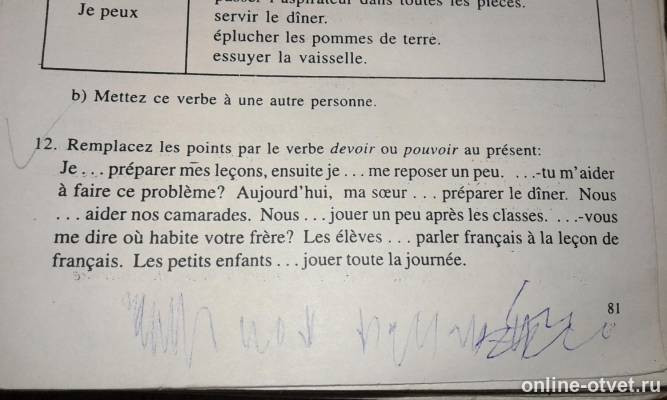 passer l'aspirateur dans toutes les pièces.
Je peux
servir le dîner.
éplucher les pommes de terre.
essuyer la vaisselle.
b) Mettez ce verbe à une autre personne.
12. Remplacez les points par le verbe devoir ou pouvoir au présent:
Je . . . préparer mes leçons, ensuite je . . . me reposer un peu. . . .-tu m'aider
à faire ce problème? Aujourd'hui, ma sœur . . . préparer le dîner. Nous
. . . aider nos camarades. Nous . . . jouer un peu après les classes. . . .-vous
me dire où habite votre frère? Les élèves . . . parler français à la leçon de
français. Les petits enfants . . . jouer toute la journée.
81
online-otvet.ru